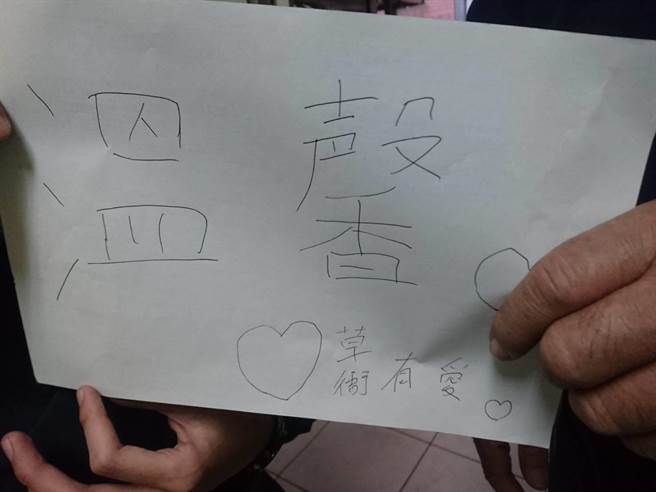 溫馨
草衙有愛